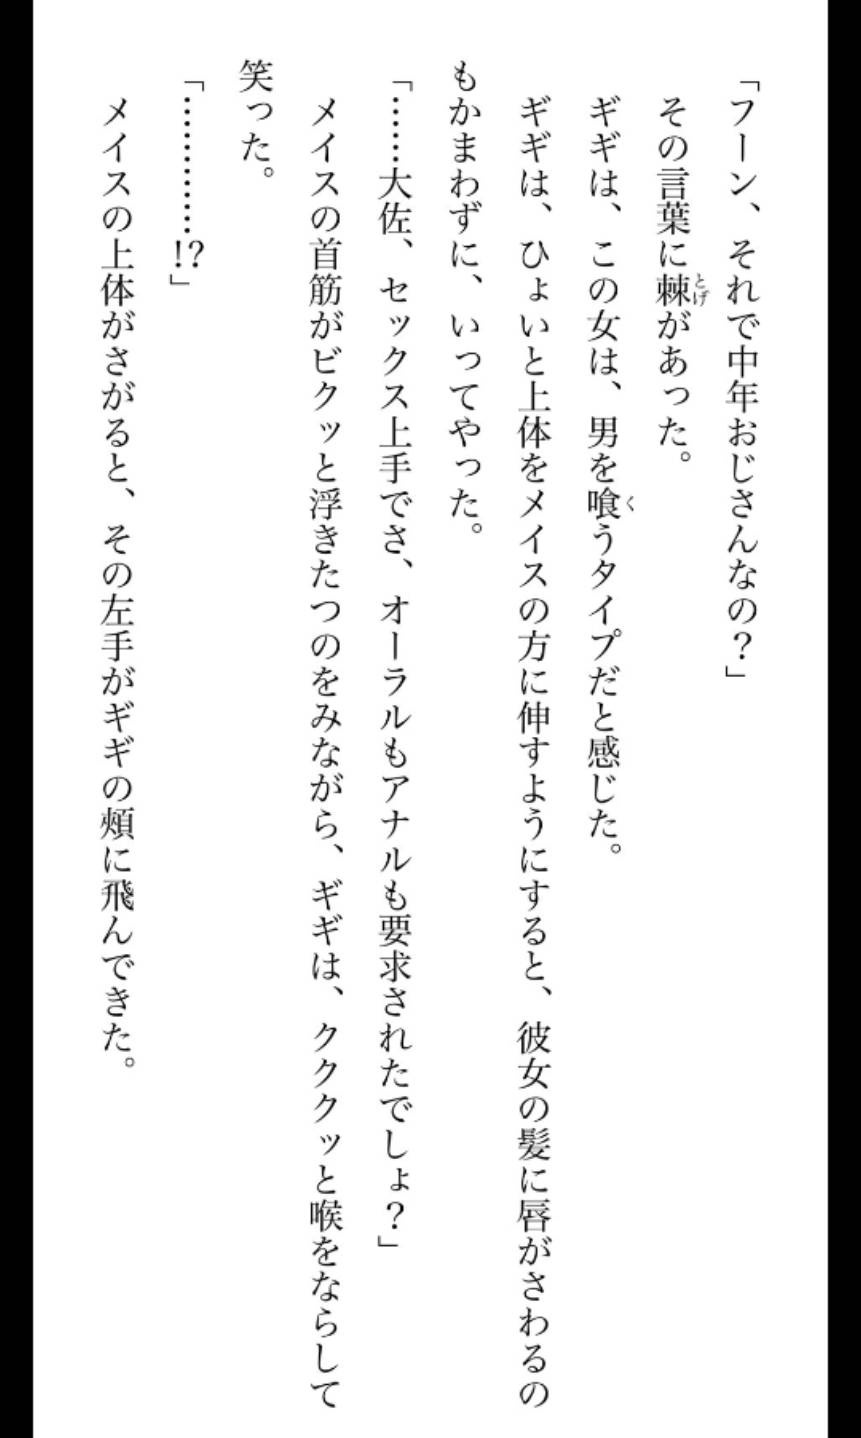 「フーン、それで中年おじさんなの？」
その言葉に棘とげがあった。
ギギは、この女は、男を喰くうタイプだと感じた。
ギギは、ひょいと上体をメイスの方に伸すようにすると、彼女の髪に唇がさわるの
もかまわずに、いってやった。
「……大佐、セックス上手でさ、オーラルもアナルも要求されたでしょ？」
メイスの首筋がビクッと浮きたつのをみながら、ギギは、クククッと喉をならして
笑った。
「…………!?」
メイスの上体がさがると、その左手がギギの頰に飛んできた。